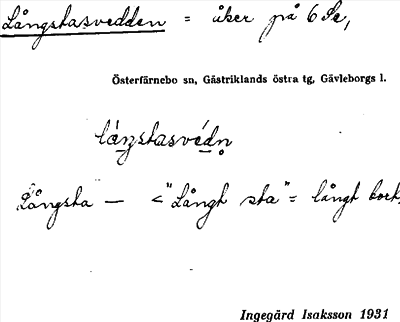 Långstasvedden = åker på 6 Se,
Österfärnebo sn, Gästriklands östra tg, Gävleborgs l.
Långsta — < "Långt sta" = långt bort,
Ingegärd Isaksson 1931